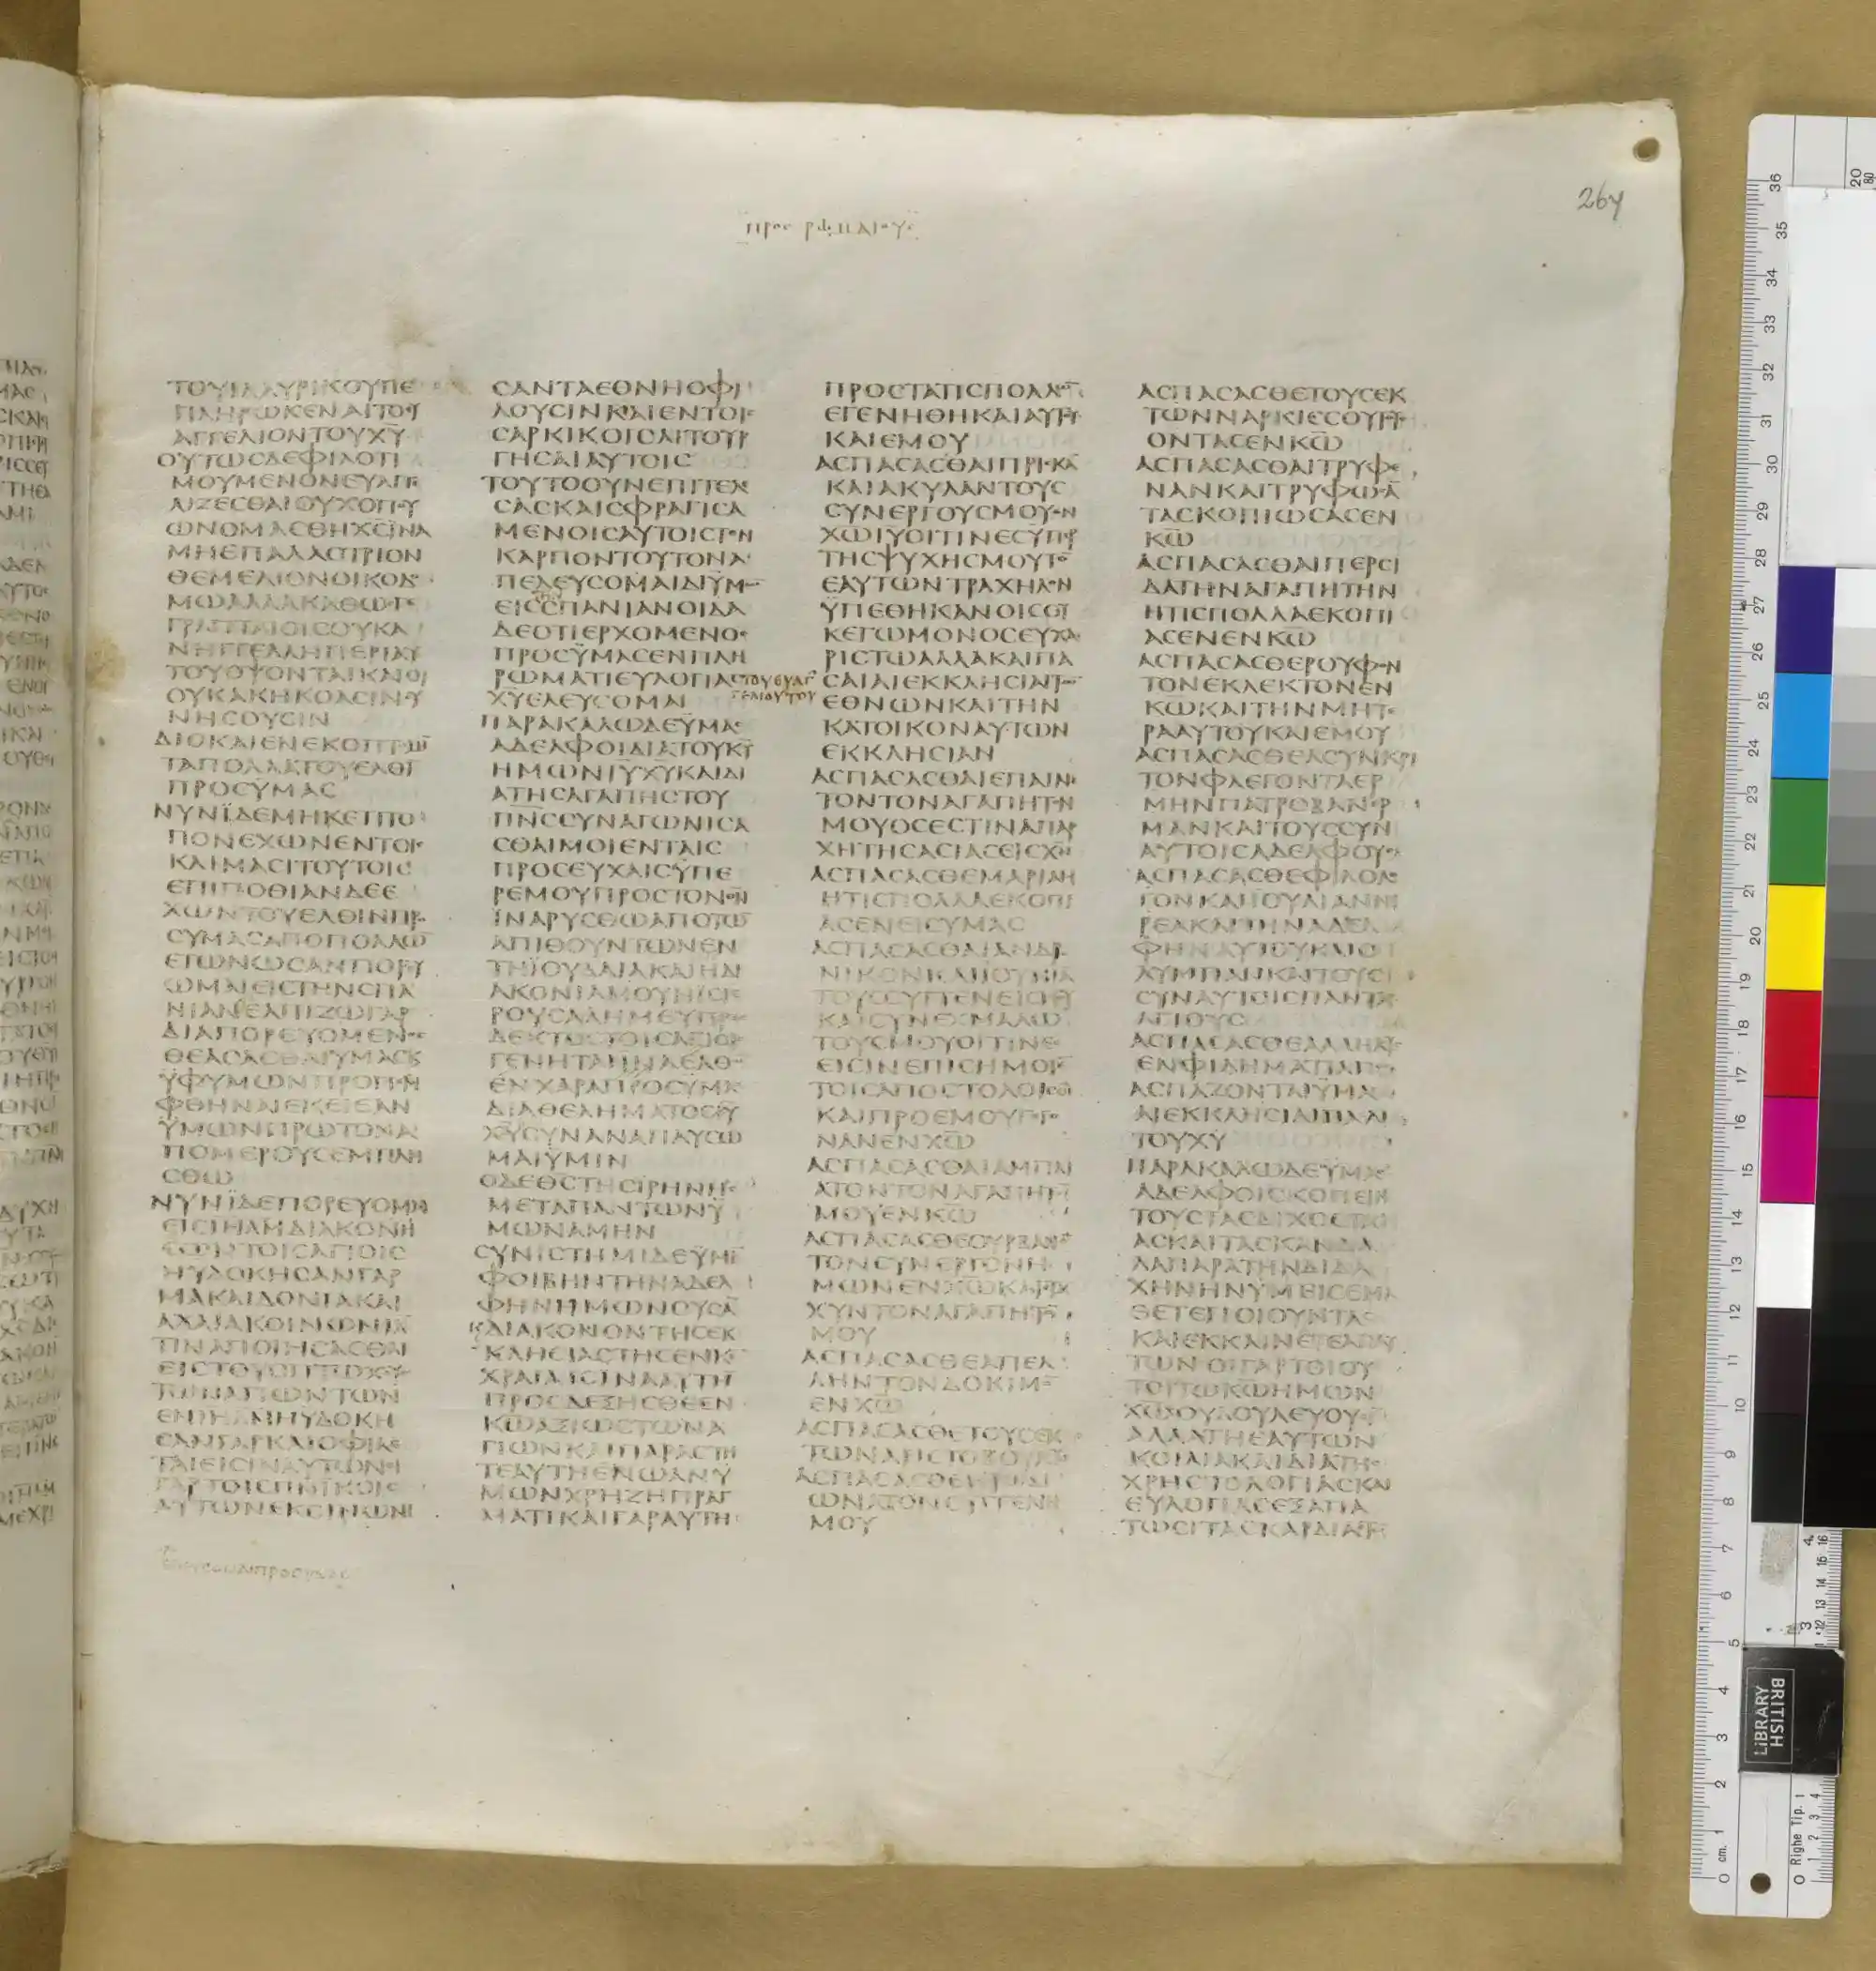 προς ρωμαιους
264
ΤΟΥΙΛΛΥΡΙΚΟΥΠΕ
ΠΛΗΡΩΚΕΝΑΙΤΟΥ
ΑΓΓΕΛΙΟΝΤΟΥΧΥ
ΟΥΤΩΣΔΕΦΙΛΟΤΙ
ΜΟΥΜΕΝΟΝΕΥΑΓΓΕ
ΛΙΖΕΣΘΑΙΟΥΧΟΠΟΥ
ΩΝΟΜΑΣΘΗΧΣΙΝΑ
ΜΗΕΠΑΛΛΟΤΡΙΟΝ
ΘΕΜΕΛΙΟΝΟΙΚΟΔΟ
ΜΩΑΛΛΑΚΑΘΩΣΓΕ
ΓΡΑΠΤΑΙΟΙΣΟΥΚΑ
ΝΗΓΓΕΛΗΠΕΡΙΑΥ
ΤΟΥΟΨΟΝΤΑΙΚΑΙΟΙ
ΟΥΚΑΚΗΚΟΑΣΙΝΣΥ
ΝΗΣΟΥΣΙΝ
ΔΙΟΚΑΙΕΝΕΚΟΠΤΟΜΗ
ΤΑΠΟΛΛΑΤΟΥΕΛΘΙ
ΠΡΟΣΥΜΑΣ
ΝΥΝΪΔΕΜΗΚΕΤΙΤΟ
ΠΟΝΕΧΩΝΕΝΤΟΙΣ
ΚΛΙΜΑΣΙΤΟΥΤΟΙΣ
ΕΠΙΠΟΘΙΑΝΔΕΕ
ΧΩΝΤΟΥΕΛΘΙΝΠΡΟ
ΣΥΜΑΣΑΠΟΠΟΛΛΩ
ΕΤΩΝΩΣΑΝΠΟΡΕΥ
ΩΜΑΙΕΙΣΤΗΝΣΠΑ
ΝΙΑΝΕΛΠΙΖΩΓΑΡ
ΔΙΑΠΟΡΕΥΟΜΕΝΟΣ
ΘΕΑΣΑΣΘΑΙΥΜΑΣΚΑΙ
ΫΦΥΜΩΝΠΡΟΠΕΜ
ΦΘΗΝΑΙΕΚΕΙΕΑΝ
ΫΜΩΝΠΡΩΤΟΝΑ
ΠΟΜΕΡΟΥΣΕΜΠΛΗ
ΣΘΩ
ΝΥΝΪΔΕΠΟΡΕΥΟΜΑΙ
ΕΙΣΙΗΛΜΔΙΑΚΟΝΗ
ΣΩΝΤΟΙΣΑΓΙΟΙΣ
ΗΥΔΟΚΗΣΑΝΓΑΡ
ΜΑΚΑΙΔΟΝΙΑΚΑΙ
ΑΧΑΙΑΚΟΙΝΩΝΙΑ
ΤΙΝΑΠΟΙΗΣΑΣΘΑΙ
ΕΙΣΤΟΥΣΠΤΩΧΟΥΣ
ΤΩΝΑΓΙΩΝΤΩΝ
ΕΝΙΗΛΜΗΥΔΟΚΗ
ΣΑΝΓΑΡΚΑΙΟΦΙΛΕ
ΤΑΙΕΙΣΙΝΑΥΤΩΝΕΙ
ΓΑΡΤΟΙΣΠΝΙΚΟΙΣ
ΑΥΤΩΝΕΚΟΙΝΩΝΗ
ΣΑΝΤΑΕΘΝΗΟΦΙ
ΛΟΥΣΙΝΚΑΙΕΝΤΟΙΣ
ΣΑΡΚΙΚΟΙΣΛΙΤΟΥΡ
ΓΗΣΑΙΑΥΤΟΙΣ
ΤΟΥΤΟΟΥΝΕΠΙΤΕΛΕ
ΣΑΣΚΑΙΣΦΡΑΓΙΣΑ
ΜΕΝΟΣΑΥΤΟΙΣΤΟΝ
ΚΑΡΠΟΝΤΟΥΤΟΝΑ
ΠΕΛΕΥΣΟΜΑΙΔΙΫΜΩ
ΕΙΣΣΠΑΝΙΑΝΟΙΔΑ
ΔΕΟΤΙΕΡΧΟΜΕΝΟΣ
ΠΡΟΣΫΜΑΣΕΝΠΛΗ
ΡΩΜΑΤΙΕΥΛΟΓΙΑΣ
ΤΟΥΕΥΑΓ
ΓΕΛΙΟΥΤΟΥ
ΧΥΕΛΕΥΣΟΜΑΙ
ΠΑΡΑΚΑΛΩΔΕΫΜΑΣ
ΑΔΕΛΦΟΙΔΙΑΤΟΥΚΥ
ΗΜΩΝΙΥΧΥΚΑΙΔΙ
ΑΤΗΣΑΓΑΠΗΣΤΟΥ
ΠΝΣΣΥΝΑΓΩΝΙΣΑ
ΣΘΑΙΜΟΙΕΝΤΑΙΣ
ΠΡΟΣΕΥΧΑΙΣΫΠΕ
ΡΕΜΟΥΠΡΟΣΤΟΝΘΝ
ΪΝΑΡΥΣΘΩΑΠΟΤΩ
ΑΠΙΘΟΥΝΤΩΝΕΝ
ΤΗΪΟΥΔΑΙΑΚΑΙΗΔΙ
ΑΚΟΝΙΑΜΟΥΗΕΙΣΙΕ
ΡΟΥΣΑΛΗΜΕΥΠΡΟΣ
ΔΕΚΤΟΣΤΟΙΣΑΓΙΟΙΣ
ΓΕΝΗΤΑΙΙΝΑΕΛΘΩ
ΕΝΧΑΡΑΠΡΟΣΥΜΑΣ
ΔΙΑΘΕΛΗΜΑΤΟΣΙΥ
ΧΥΣΥΝΑΝΑΠΑΥΣΩ
ΜΑΙΫΜΙΝ
ΟΔΕΘΣΤΗΣΙΡΗΝΗΣ
ΜΕΤΑΠΑΝΤΩΝΫ
ΜΩΝΑΜΗΝ
ΣΥΝΙΣΤΗΜΙΔΕΫΜΙ
ΦΟΙΒΗΝΤΗΝΑΔΕΛ
ΦΗΝΗΜΩΝΟΥΣΑ
ΔΙΑΚΟΝΟΝΤΗΣΕΚ
ΚΛΗΣΙΑΣΤΗΣΕΝΚΕ
ΧΡΑΙΑΙΣΙΝΑΑΥΤΗ
ΠΡΟΣΔΕΞΗΣΘΕΕΝ
ΚΩΑΞΙΩΣΤΩΝΑ
ΓΙΩΝΚΑΙΠΑΡΑΣΤΗ
ΤΕΑΥΤΗΕΝΩΑΝΫ
ΜΩΝΧΡΗΖΗΠΡΑΓ
ΜΑΤΙΚΑΙΓΑΡΑΥΤΗ
ΠΡΟΣΤΑΤΙΣΠΟΛΛΩ
ΕΓΕΝΗΘΗΚΑΙΑΥΤΟΥ
ΚΑΙΕΜΟΥ
ΑΣΠΑΣΑΣΘΑΙΠΡΙΣΚΑ
ΚΑΙΑΚΥΛΑΝΤΟΥΣ
ΣΥΝΕΡΓΟΥΣΜΟΥΕΝ
ΧΩΙΥΟΙΤΙΝΕΣΫΠΕΡ
ΤΗΣΨΥΧΗΣΜΟΥΤΟ
ΕΑΥΤΩΝΤΡΑΧΗΛΟΝ
ΫΠΕΘΗΚΑΝΟΙΣΟΥ
ΚΕΓΩΜΟΝΟΣΕΥΧΑ
ΡΙΣΤΩΑΛΛΑΚΑΙΠΑ
ΣΑΙΑΙΕΚΚΛΗΣΙΑΙΤΩ
ΕΘΝΩΝΚΑΙΤΗΝ
ΚΑΤΟΙΚΟΝΑΥΤΩΝ
ΕΚΚΛΗΣΙΑΝ
ΑΣΠΑΣΑΣΘΑΙΕΠΑΙΝΕ
ΤΟΝΤΟΝΑΓΑΠΗΤΟΝ
ΜΟΥΟΣΕΣΤΙΝΑΠΑΡ
ΧΗΤΗΣΑΣΙΑΣΕΙΣΧΝ
ΑΣΠΑΣΑΣΘΕΜΑΡΙΑΜ
ΗΤΙΣΠΟΛΛΑΕΚΟΠΙ
ΑΣΕΝΕΙΣΥΜΑΣ
ΑΣΠΑΣΑΣΘΑΙΑΝΔΡΟ
ΝΙΚΟΝΚΑΙΙΟΥΝΙΑ
ΤΟΥΣΣΥΓΓΕΝΕΙΣΜΟΥ
ΚΑΙΣΥΝΕΧΜΑΛΩ
ΤΟΥΣΜΟΥΟΙΤΙΝΕΣ
ΕΙΣΙΝΕΠΙΣΗΜΟΙΕ
ΤΟΙΣΑΠΟΣΤΟΛΟΙΣΟΙ
ΚΑΙΠΡΟΕΜΟΥΓΕΓΟ
ΝΑΝΕΝΧΩ
ΑΣΠΑΣΑΣΘΑΙΑΜΠΛΙ
ΑΤΟΝΤΟΝΑΓΑΠΗΤΟ
ΜΟΥΕΝΚΩ
ΑΣΠΑΣΑΣΘΕΟΥΡΒΑΝΟ
ΤΟΝΣΥΝΕΡΓΟΝΗ
ΜΩΝΕΝΧΩΚΑΙΣΤΑ
ΧΥΝΤΟΝΑΓΑΠΗΤΟ
ΜΟΥ
ΑΣΠΑΣΑΣΘΕΑΠΕΛ
ΛΗΝΤΟΝΔΟΚΙΜΟ
ΕΝΧΩ
ΑΣΠΑΣΑΣΘΕΤΟΥΣΕΚ
ΤΩΝΑΡΙΣΤΟΒΟΥΛΟΥ
ΑΣΠΑΣΑΣΘΕΗΡΩΔΙ
ΩΝΑΤΟΝΣΥΓΓΕΝΗ
ΜΟΥ
ΑΣΠΑΣΑΣΘΕΤΟΥΣΕΚ
ΤΩΝΝΑΡΚΙΣΣΟΥΤΟΥΣ
ΟΝΤΑΣΕΝΚΩ
ΑΣΠΑΣΑΣΘΑΙΤΡΥΦΕ
ΝΑΝΚΑΙΤΡΥΦΩΣΑ
ΤΑΣΚΟΠΙΩΣΑΣΕΝ
ΚΩ
ΑΣΠΑΣΑΣΘΑΙΠΕΡΣΙ
ΔΑΤΗΝΑΓΑΠΗΤΗΝ
ΗΤΙΣΠΟΛΛΑΕΚΟΠΙ
ΑΣΕΝΕΝΚΩ
ΑΣΠΑΣΑΣΘΕΡΟΥΦΟΝ
ΤΟΝΕΚΛΕΚΤΟΝΕΝ
ΚΩΚΑΙΤΗΝΜΗΤΕ
ΡΑΑΥΤΟΥΚΑΙΕΜΟΥ
ΑΣΠΑΣΑΣΘΕΑΣΥΝΚΡΙ
ΤΟΝΦΛΕΓΟΝΤΑΕΡ
ΜΗΝΠΑΤΡΟΒΑΝΕΡ
ΜΑΝΚΑΙΤΟΥΣΣΥΝ
ΑΥΤΟΙΣΑΔΕΛΦΟΥΣ
ΑΣΠΑΣΑΣΘΕΦΙΛΟΛΟ
ΓΟΝΚΑΙΙΟΥΛΙΑΝΝΗ
ΡΕΑΚΑΙΤΗΝΑΔΕΛ
ΦΗΝΑΥΤΟΥΚΑΙΟ
ΛΥΜΠΑΝΚΑΙΤΟΥΣ
ΣΥΝΑΥΤΟΙΣΠΑΝΤΑΣ
ΑΓΙΟΥΣ
ΑΣΠΑΣΑΣΘΕΑΛΛΗΛΟΥΣ
ΕΝΦΙΛΗΜΑΤΙΑΓΙΩ
ΑΣΠΑΖΟΝΤΑΙΫΜΑΣ
ΑΙΕΚΚΛΗΣΙΑΙΠΑΣΑΙ
ΤΟΥΧΥ
ΠΑΡΑΚΑΛΩΔΕΫΜΑΣ
ΑΔΕΛΦΟΙΣΚΟΠΕΙΝ
ΤΟΥΣΤΑΣΔΙΧΟΣΤΑΣΙ
ΑΣΚΑΙΤΑΣΚΑΝΔΑ
ΛΑΠΑΡΑΤΗΝΔΙΔΑ
ΧΗΝΗΝΫΜΕΙΣΕΜΑ
ΘΕΤΕΠΟΙΟΥΝΤΑΣ
ΚΑΙΕΚΚΛΙΝΕΤΕΑΠΑΥ
ΤΩΝΟΙΓΑΡΤΟΙΟΥ
ΤΟΙΤΩΚΩΗΜΩΝ
ΧΩΟΥΔΟΥΛΕΥΟΥΣΙ
ΑΛΛΑΤΗΕΑΥΤΩΝ
ΚΟΙΛΙΑΚΑΙΔΙΑΤΗΣ
ΧΡΗΣΤΟΛΟΓΙΑΣΚΑΙ
ΕΥΛΟΓΙΑΣΕΞΑΠΑ
ΤΩΣΙΤΑΣΚΑΡΔΙΑΣ
ελευσομαιπροσυμας
BRITISH
LIBRARY